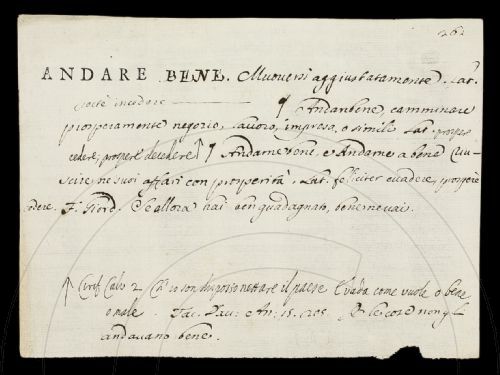 262
ANDARE BENE. Muoversi aggiustatamente. Lat.
recte incedere ¶ Andar bene, camminare
prosperamente negozio, lavoro, impresa, o simili. Lat. prospe
cedere, prospere decedere ↑ ¶ Andarne bene, e Andarne a bene Riu-
scire, ne suoi affari con prosperità. Lat. feliciter evadere, prospere
cedere. F. Giord. Se allora hai ben guadagnato, bene ne vai.
↑ Cirif. Calv. 2 io son disposto nettare il paese E vada come vuole o bene
o male. Tac. Dav. An. 15. 205 le cose non gli
andavano bene.